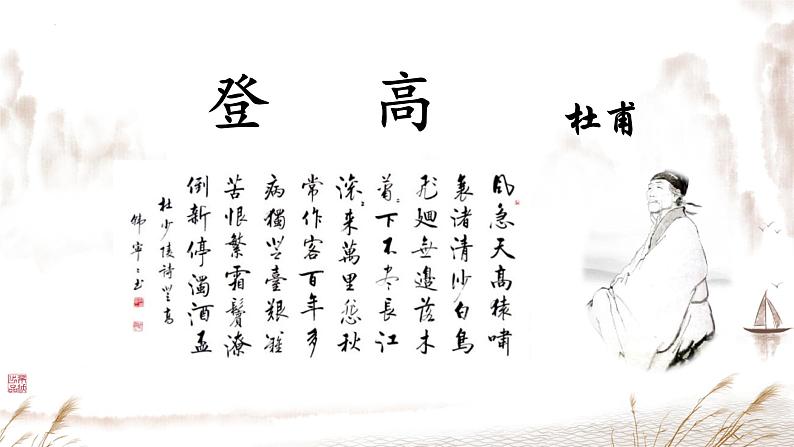 登 高
杜甫
風急天高猿嘯
哀渚清沙白鳥
飛廻無邊落木
蕭〻下不盡長江
滚〻來萬里悲秋
常作客百年多
病獨登臺艱難
苦恨繁霜鬢潦
倒新停濁酒盃
杜少陵詩登高